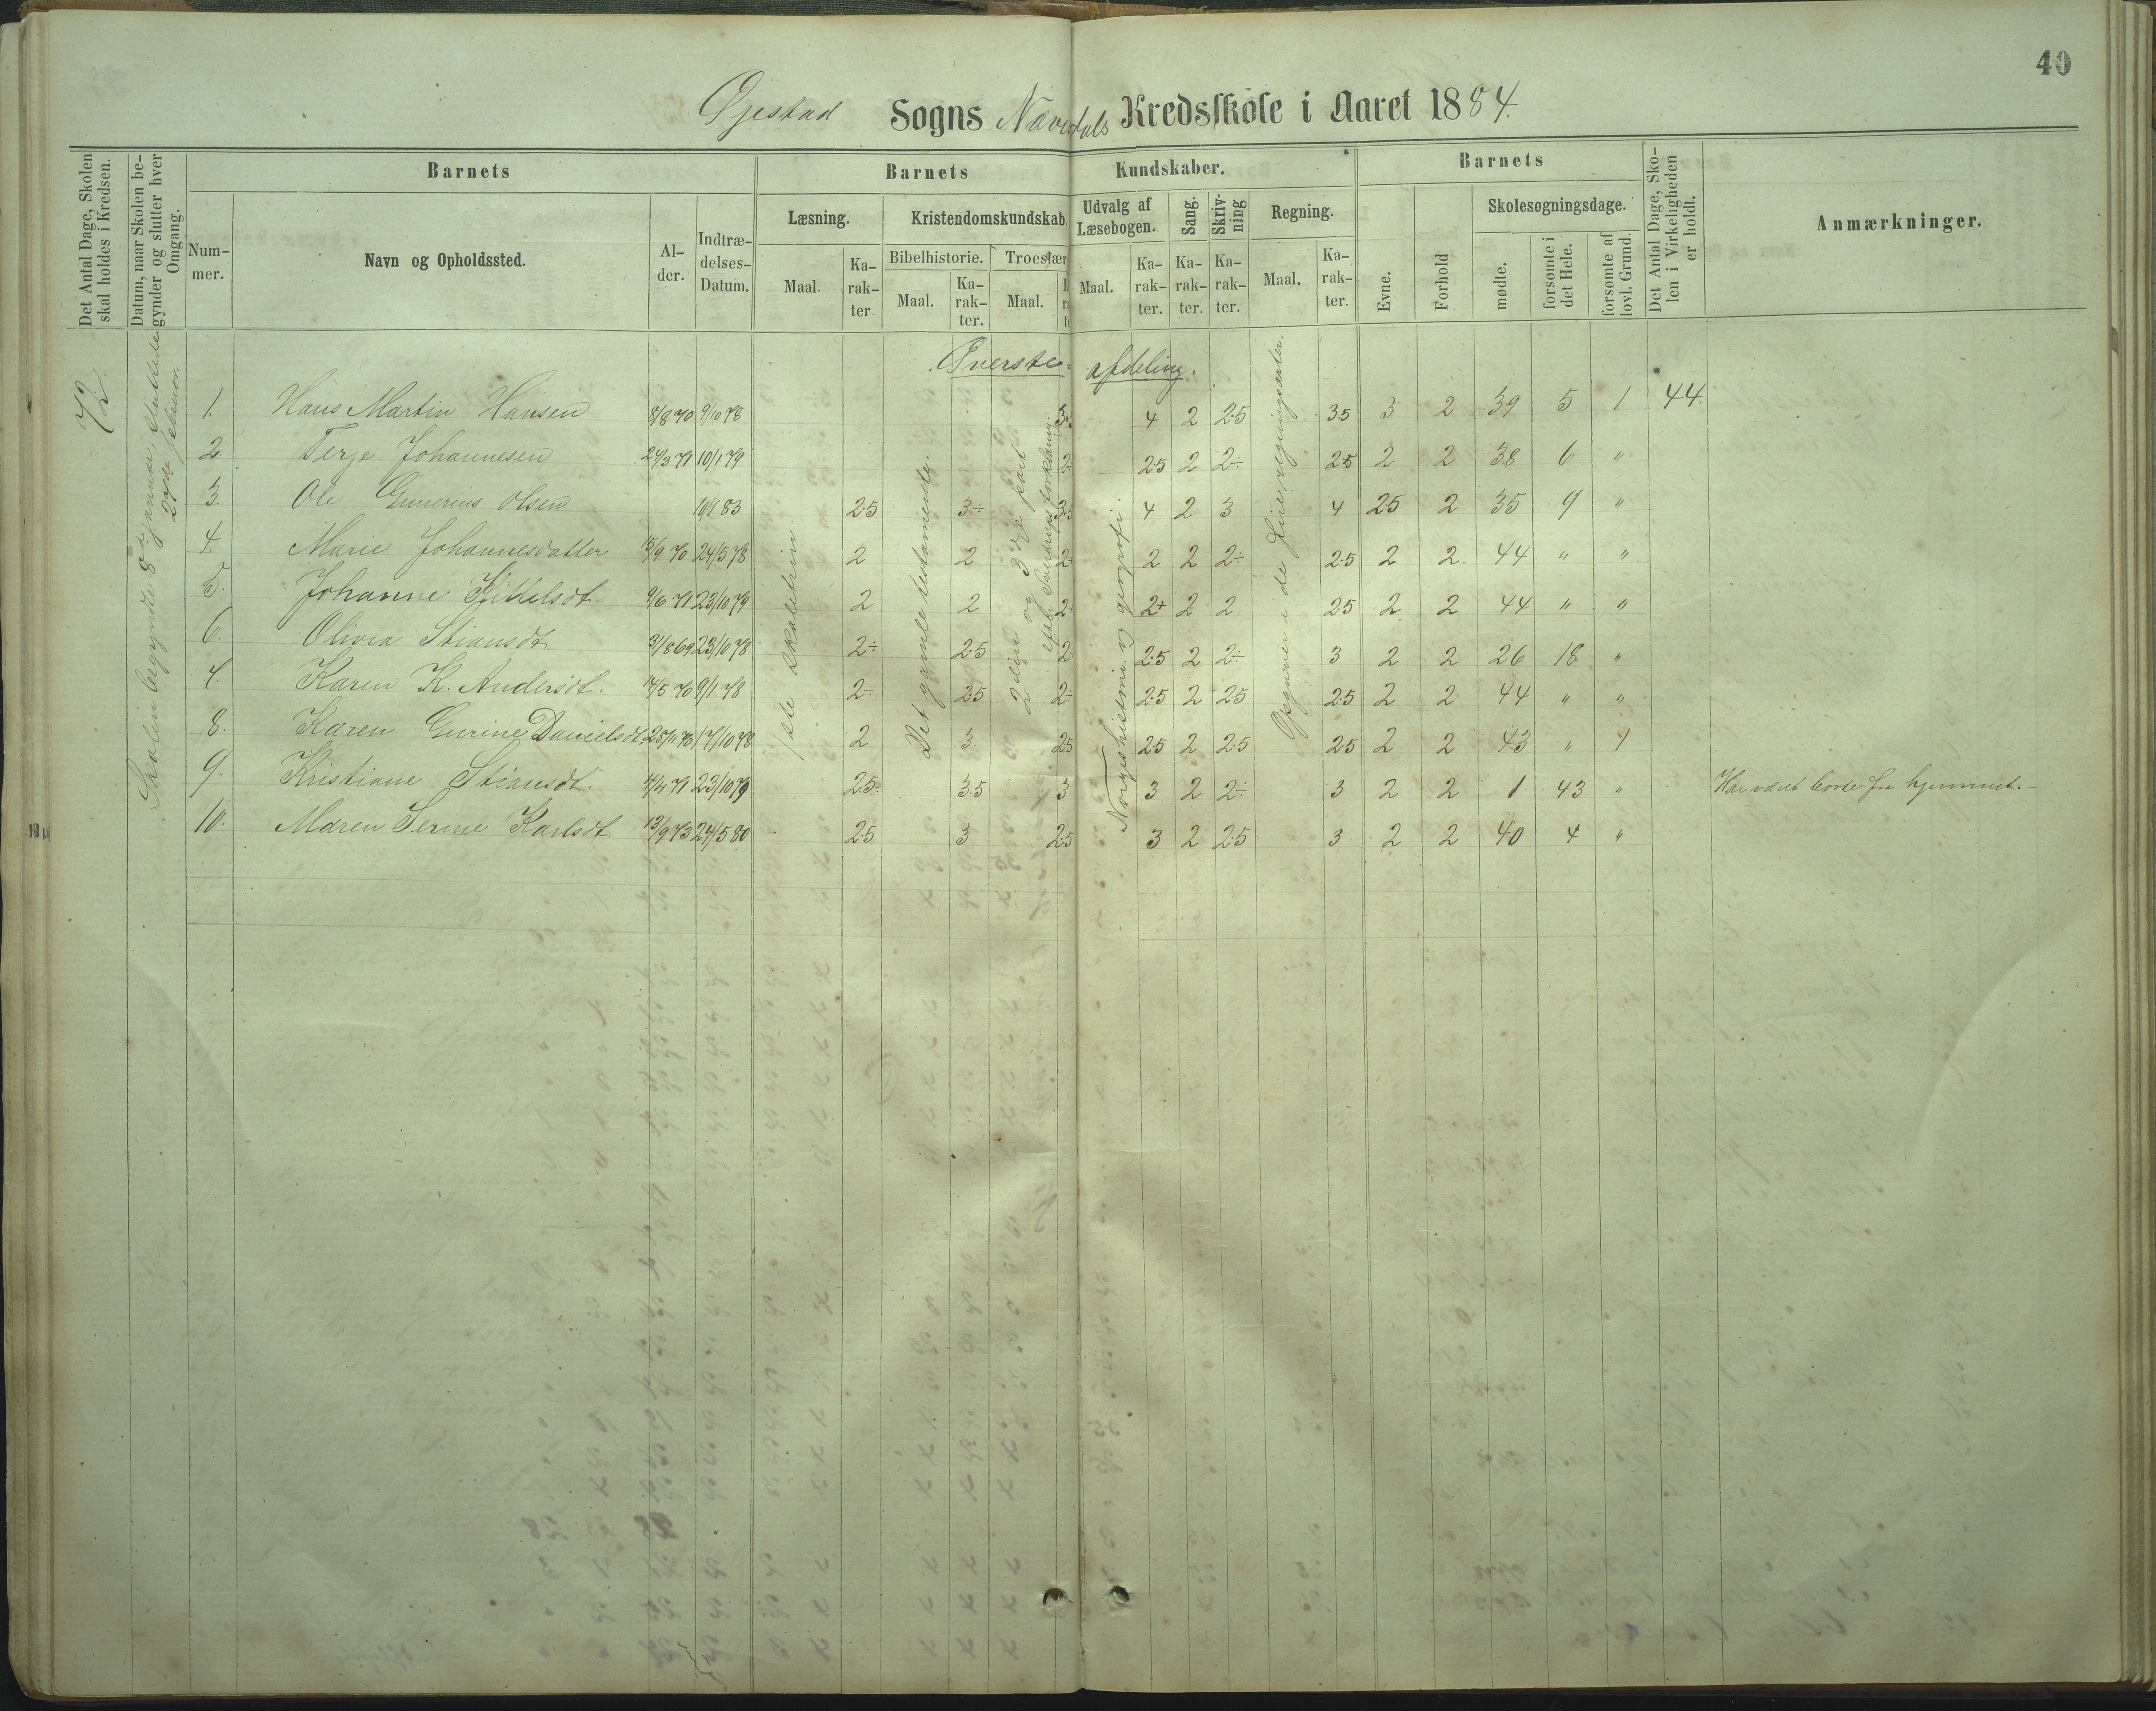 40
Øjestad Sogns Nævedals Kredsskole i Aaret 1884.
Det Antal Dage, Skolen skal holdes i Kredsen.
Datum, naar Skolen begynder og slutter hver Omgang.
Barnets
Nummer.
Navn og Opholdssted.
Alder.
Indtrædelses-Datum.
Barnets Kundskaber.
Læsning.
Maal.
Karakter
Kristendomskundskab.
Bibelhistorie.
Maal.
Karakter.
Troeslær
Maal.
Udvalg af Læsebogen.
Maal.
Karakter.
Sang.
Karakter.
Skrivning
Karakter.
Regning.
Maal.
Karakter.
Barnets
Evne.
Forhold
Skolesøgningsdage.
mødte.
forsømte i det Hele.
forsømte af lovl. Grund.
Det Antal Dage, Skolen i Virkeligheden er holdt.
Anmærkninger.
Øverste afdeling.
72
Skolen begyndte 8de januar, sluttede 27de februar.
1ste skoletrin.
Det gamle testamente.
2den og 3dje part
efter Sverdrups forklaring.
Norges historie og geografi.
Opgaver i de fire regningsarter.
1. Hans Martin Hansen 8/8 70 9/10 78 3. 4 2 2.5 3.5 3 2 39 5 1 44.
2. Terje Johannesen 29/3 71 10/1 79 2 2.5 2 2÷ 2.5 2 2 38 6 "
3. Ole Gunerius Olsen 10/1 83 2.5 3÷ 3 4 2 3 4 2.5 2 35 9 "
4. Marie Johannesdatter 15/9 70 24/5 78 2 2 2 2 2 2÷ 2.5 2 2 44 " "
5. Johanne Kittelsdt. 9/6 71 23/10 79 2 2 2 2+ 2 2 2.5 2 2 44 " "
6. Olivia Stiansdt. 31/8 69 23/10 78 2÷ 2.5 2 2.5 2 2÷ 3 2 2 26 18 "
7. Karen K. Andersdt. 17/5 70 9/1 78 2÷ 2.5 2÷ 2.5 2 2.5 2.5 2 2 44 " "
8. Karen Gurine Danielsdt. 25/11 70 17/10 78 2 3. 2.5 2.5 2 2.5 2.5 2 2 43 " 1
9. Kristiane Stiansdt. 4/4 71 23/10 79 2.5÷ 3.5 3 3 2 2÷ 3 2 2 1 43 " Har været borte fra hjemmet.
10. Maren Serine Karlsdt. 13/9 73 24/5 80 2.5 3 2.5 3 2 2.5 3 2 2 40 4 "